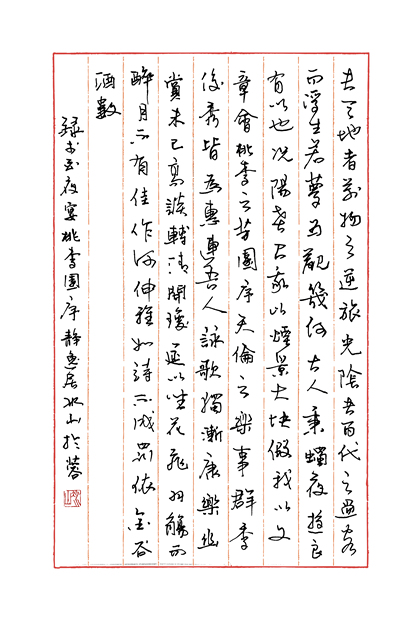 夫天地者萬物之逆旅光陰者百代之過客
而浮生若夢為歡幾何古人秉燭夜遊良
有以也況陽春召我以煙景大塊假我以文
章會桃李之芳園序天倫之樂事群季
俊秀皆為惠連吾人詠歌獨慚康樂幽
賞未已高談轉清開瓊筵以坐花飛羽觴而
醉月不有佳作何伸雅如詩不成罰依金谷
酒數
錄夜宴桃李園序靜居山於蓉